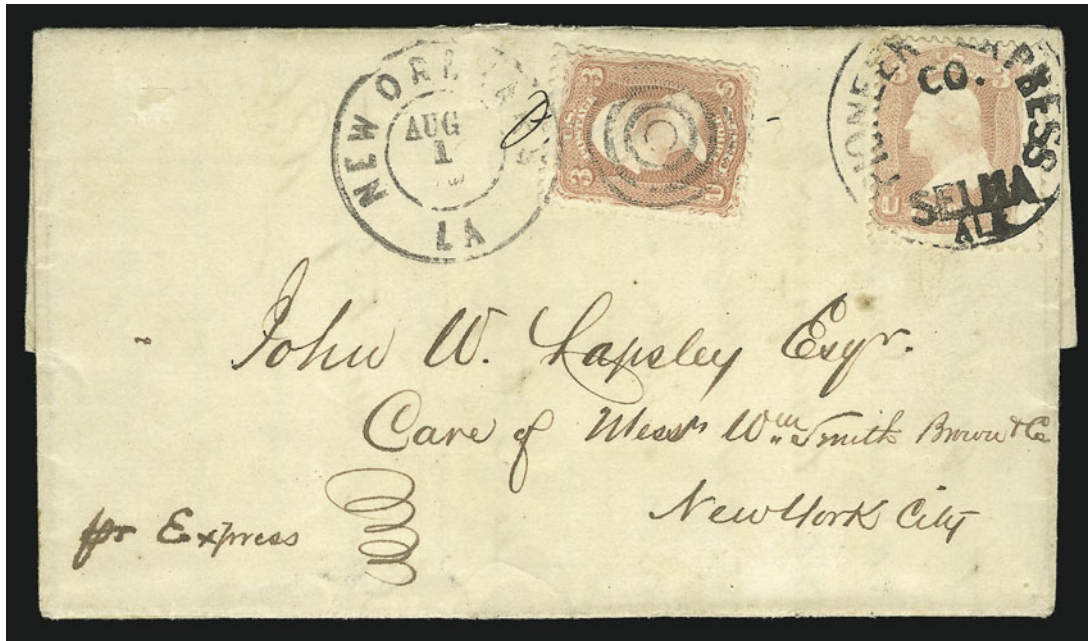 NEW ORLEANS
AUG
1
LA
3 3
U.S. POSTAGE
PIONEER EXPRESS
CO.
SELMA
ALA
John W. Lapsley Esqr.
Care of Messrs Wm Smith Brown & Co
New York City
pr Express